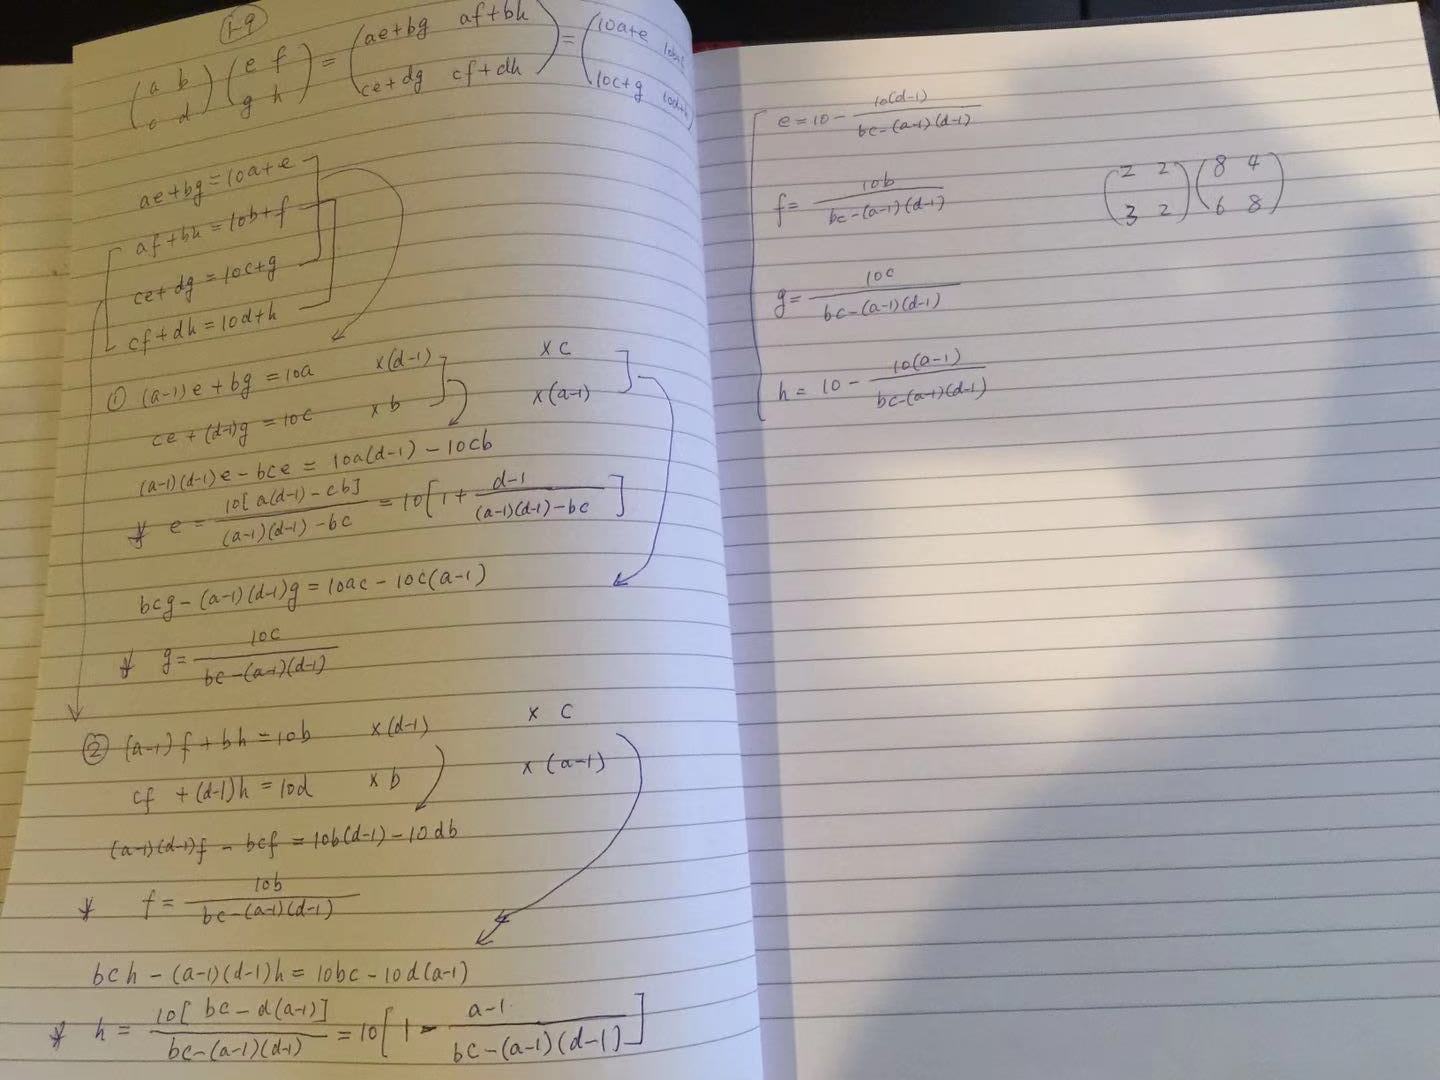 1-9
(a b) (e f) = (ae+bg af+bh) = (10a+e
c d g h ce+dg cf+dh 10c+g 10d+h)
ae+bg=10a+e
af+bh=10b+f
ce+dg=10c+g
cf+dh=10d+h
① (a-1)e+bg=10a ×(d-1) ×c
ce+(d-1)g=10c ×b ×(a-1)
(a-1)(d-1)e-bce=10a(d-1)-10cb
* e= 10[a(d-1)-cb] / (a-1)(d-1)-bc =10[1+ d-1 / (a-1)(d-1)-bc ]
bcg-(a-1)(d-1)g=10ac-10c(a-1)
* g= 10c / bc-(a-1)(d-1)
② (a-1)f+bh=10b ×(d-1) × c
cf +(d-1)h=10d ×b ×(a-1)
(a-1)(d-1)f - bcf =10b(d-1)-10db
* f= 10b / bc-(a-1)(d-1)
bch-(a-1)(d-1)h=10bc-10d(a-1)
* h= 10[bc-d(a-1)] / bc-(a-1)(d-1) =10[1- a-1 / bc-(a-1)(d-1) ]
e=10- 10(d-1) / bc-(a-1)(d-1)
f= 10b / bc-(a-1)(d-1)
g= 10c / bc-(a-1)(d-1)
h=10- 10(a-1) / bc-(a-1)(d-1)
(2 2) (8 4)
(3 2) (6 8)